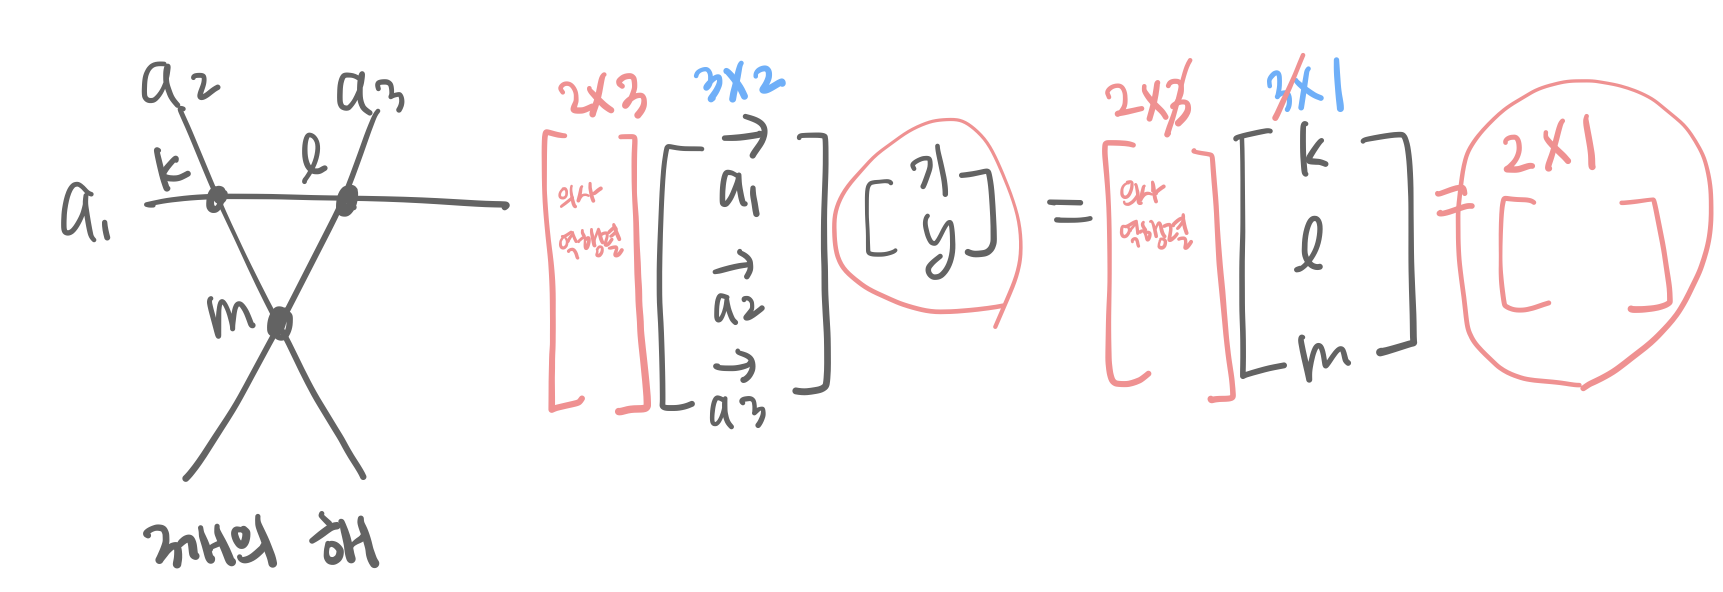 a2
a3
k
l
a1
m
3개의 해
2x3
3x2
의사
역행렬
a1
a2
a3
x
y
=
2x3
3x1
의사
역행렬
k
l
m
=
2x1